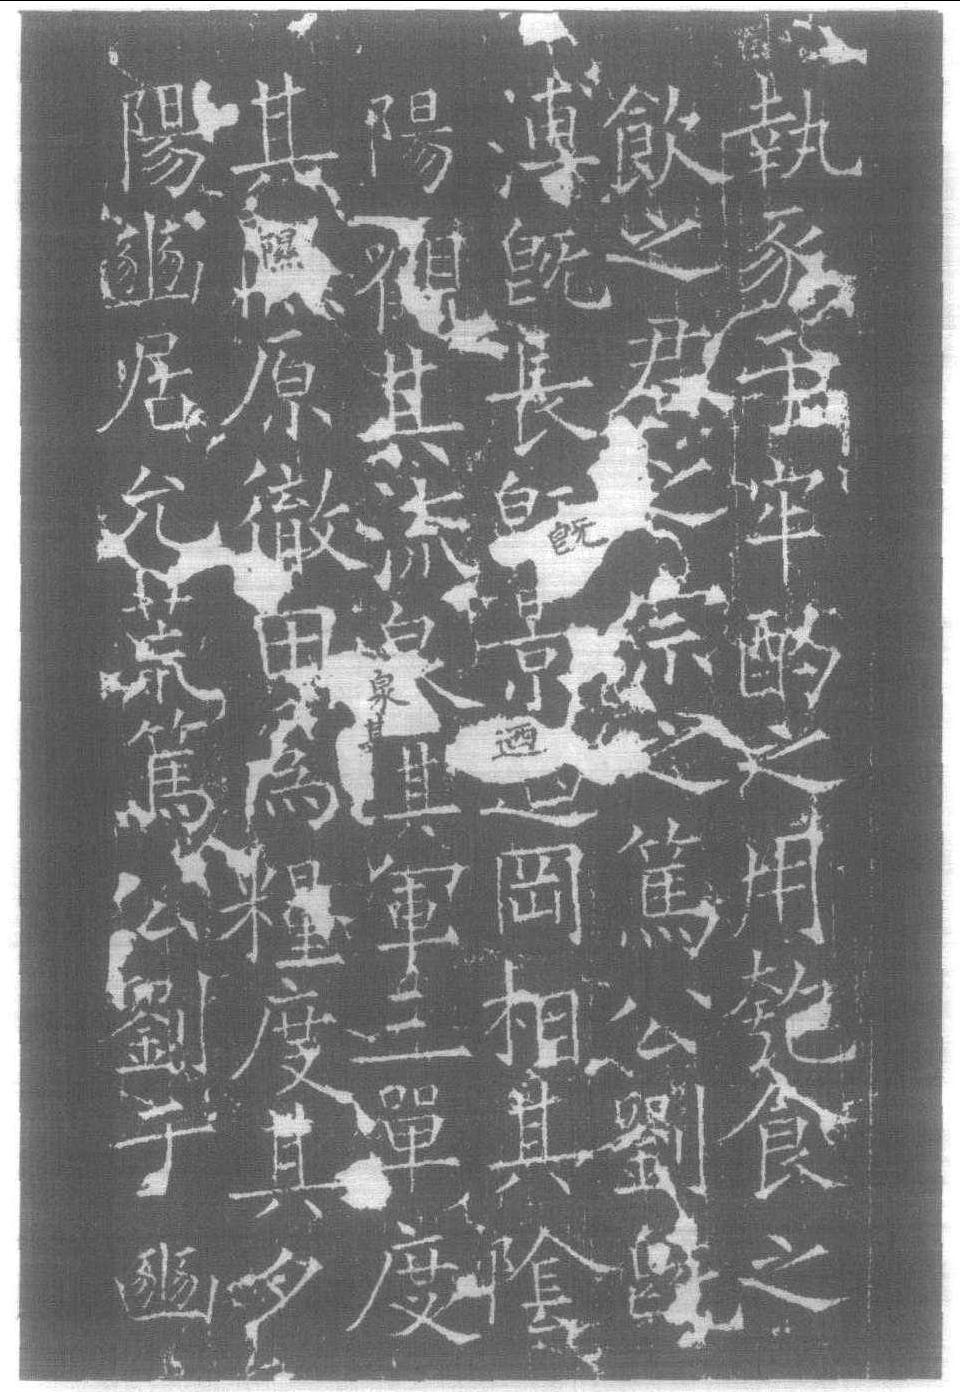 執豕于牢酌之用匏食之
飲之君之宗之篤公劉既
溥既長既景迺岡相其陰
陽觀其流泉其軍三單度
其隰原徹田為糧度其夕
陽豳居允荒篤公劉于豳